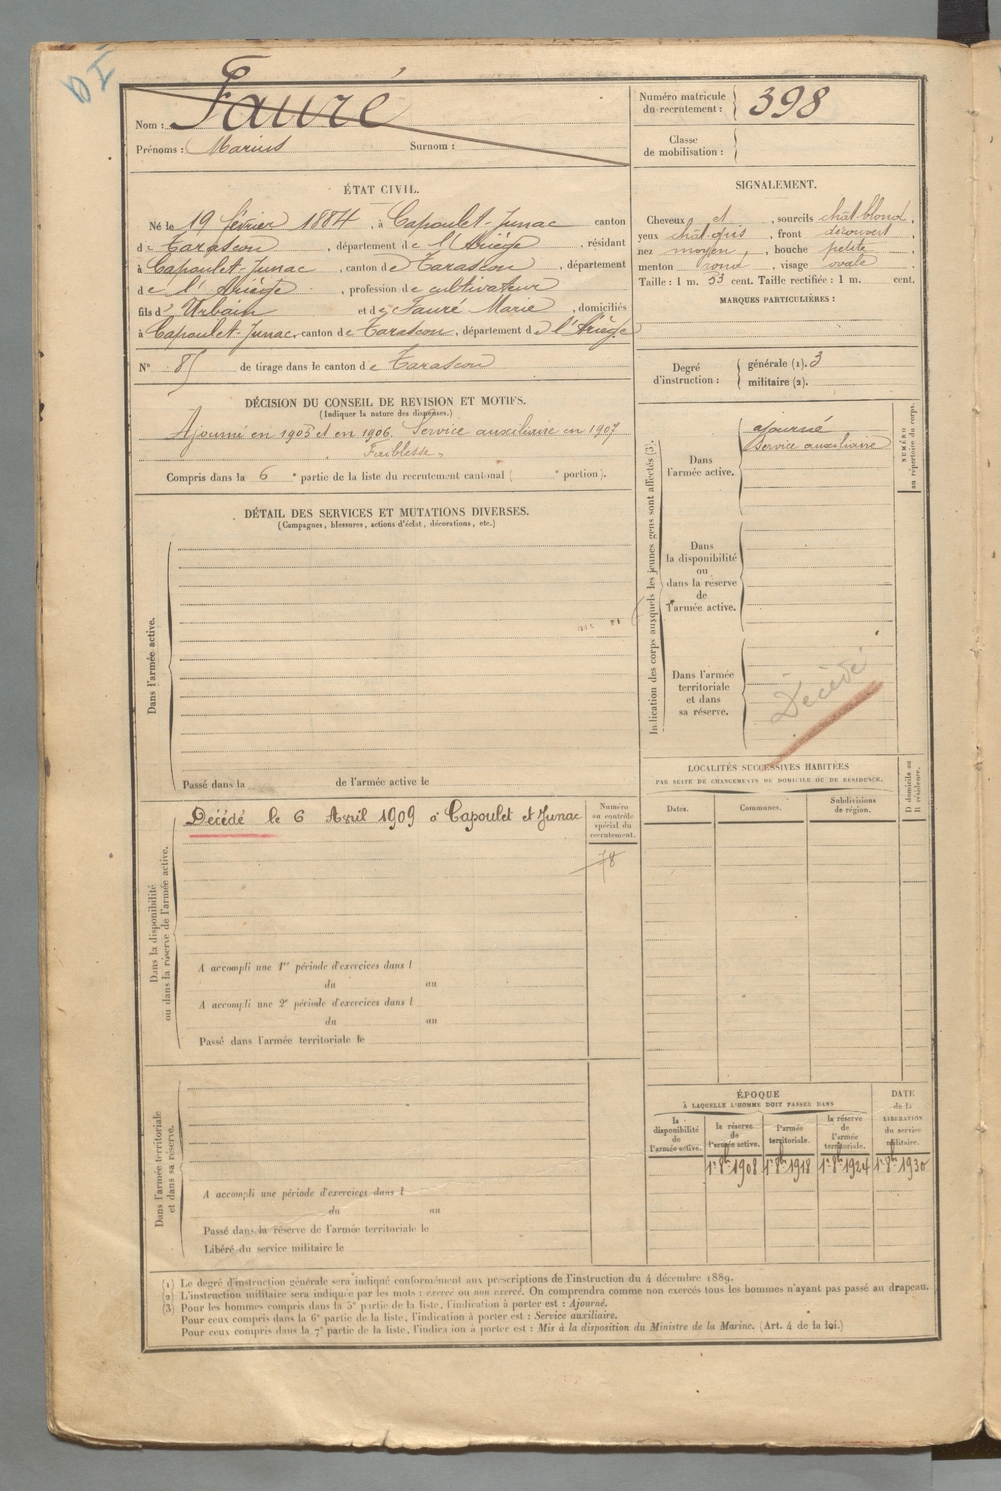 DI
Nom : Fauré
Prénoms : Marius Surnom :
Numéro matricule du recrutement : 398
Classe de mobilisation :
ÉTAT CIVIL.
Né le 19 février 1884, à Capoulet-Junac canton
de Tarascon, département de l'Ariège, résidant
à Capoulet-Junac, canton de Tarascon, département
de l'Ariège, profession de cultivateur
fils d' Urbain et de Fauré Marie, domiciliés
à Capoulet-Junac, canton de Tarascon, département de l'Ariège
N° 85 de tirage dans le canton de Tarascon
SIGNALEMENT.
Cheveux et, sourcils chât-blond,
yeux chât gris, front découvert,
nez moyen, bouche petite,
menton rond, visage ovale
Taille : 1 m. 53 cent. Taille rectifiée : 1 m. cent.
MARQUES PARTICULIÈRES :
Degré d'instruction : générale (1). 3
militaire (2).
DÉCISION DU CONSEIL DE REVISION ET MOTIFS.
(Indiquer la nature des dispenses.)
Ajourné en 1905 et en 1906. Service auxiliaire en 1907
Faiblesse.
Compris dans la 6e partie de la liste du recrutement cantonal ( e portion).
Indication des corps auxquels les jeunes gens sont affectés (3).
NUMÉRO au répertoire du corps.
Dans l'armée active.
ajourné
Service auxiliaire
Dans la disponibilité ou dans la réserve de l'armée active.
Dans l'armée territoriale et dans sa réserve.
Décédé
DÉTAIL DES SERVICES ET MUTATIONS DIVERSES.
(Campagnes, blessures, actions d'éclat, décorations, etc.)
Dans l'armée active.
Passé dans la de l'armée active le
LOCALITÉS SUCCESSIVES HABITÉES
PAR SUITE DE CHANGEMENTS DE DOMICILE OU DE RÉSIDENCE.
D domicile ou R résidence.
Dates. Communes. Subdivisions de région.
Dans la disponibilité ou dans la réserve de l'armée active.
Décédé le 6 Avril 1909 à Capoulet et Junac
Numéro au contrôle spécial du recrutement.
78
A accompli une 1re période d'exercices dans l
du au
A accompli une 2e période d'exercices dans l
du au
Passé dans l'armée territoriale le
Dans l'armée territoriale et dans sa réserve.
A accompli une période d'exercices dans l
du au
Passé dans la réserve de l'armée territoriale le
Libéré du service militaire le
ÉPOQUE
À LAQUELLE L'HOMME DOIT PASSER DANS
DATE de la LIBÉRATION du service militaire.
la disponibilité de l'armée active.
la réserve de l'armée active.
l'armée territoriale.
la réserve de l'armée territoriale.
1r 8bre 1908 1r 8bre 1918 1r 8bre 1924 1r 8bre 1930
(1) Le degré d'instruction générale sera indiqué conformément aux prescriptions de l'instruction du 4 décembre 1889.
(2) L'instruction militaire sera indiquée par les mots : exercé ou non exercé. On comprendra comme non exercés tous les hommes n'ayant pas passé au drapeau.
(3) Pour les hommes compris dans la 5e partie de la liste, l'indication à porter est : Ajourné.
Pour ceux compris dans la 6e partie de la liste, l'indication à porter est : Service auxiliaire.
Pour ceux compris dans la 7e partie de la liste, l'indication à porter est : Mis à la disposition du Ministre de la Marine. (Art. 4 de la loi.)